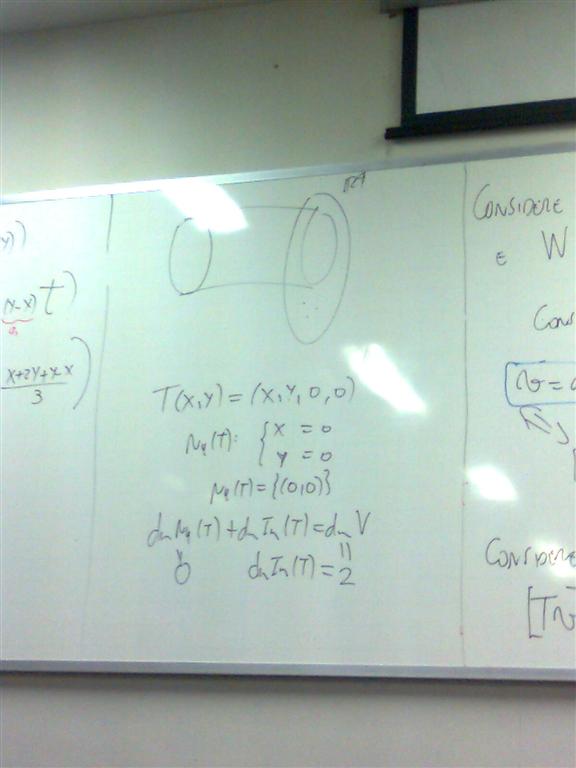 y))
(x-x) t)
x+2y+x-x
3
)
T(x,y)=(x,y,0,0)
Nq(T): { x = 0
y = 0
Nq(T)={(0,0)}
dm Nq(T)+dm Im(T)=dm V
0 dm Im(T)=2
CONSIDERE
E W
CONS
v=
CONSIDERE
[Tv]